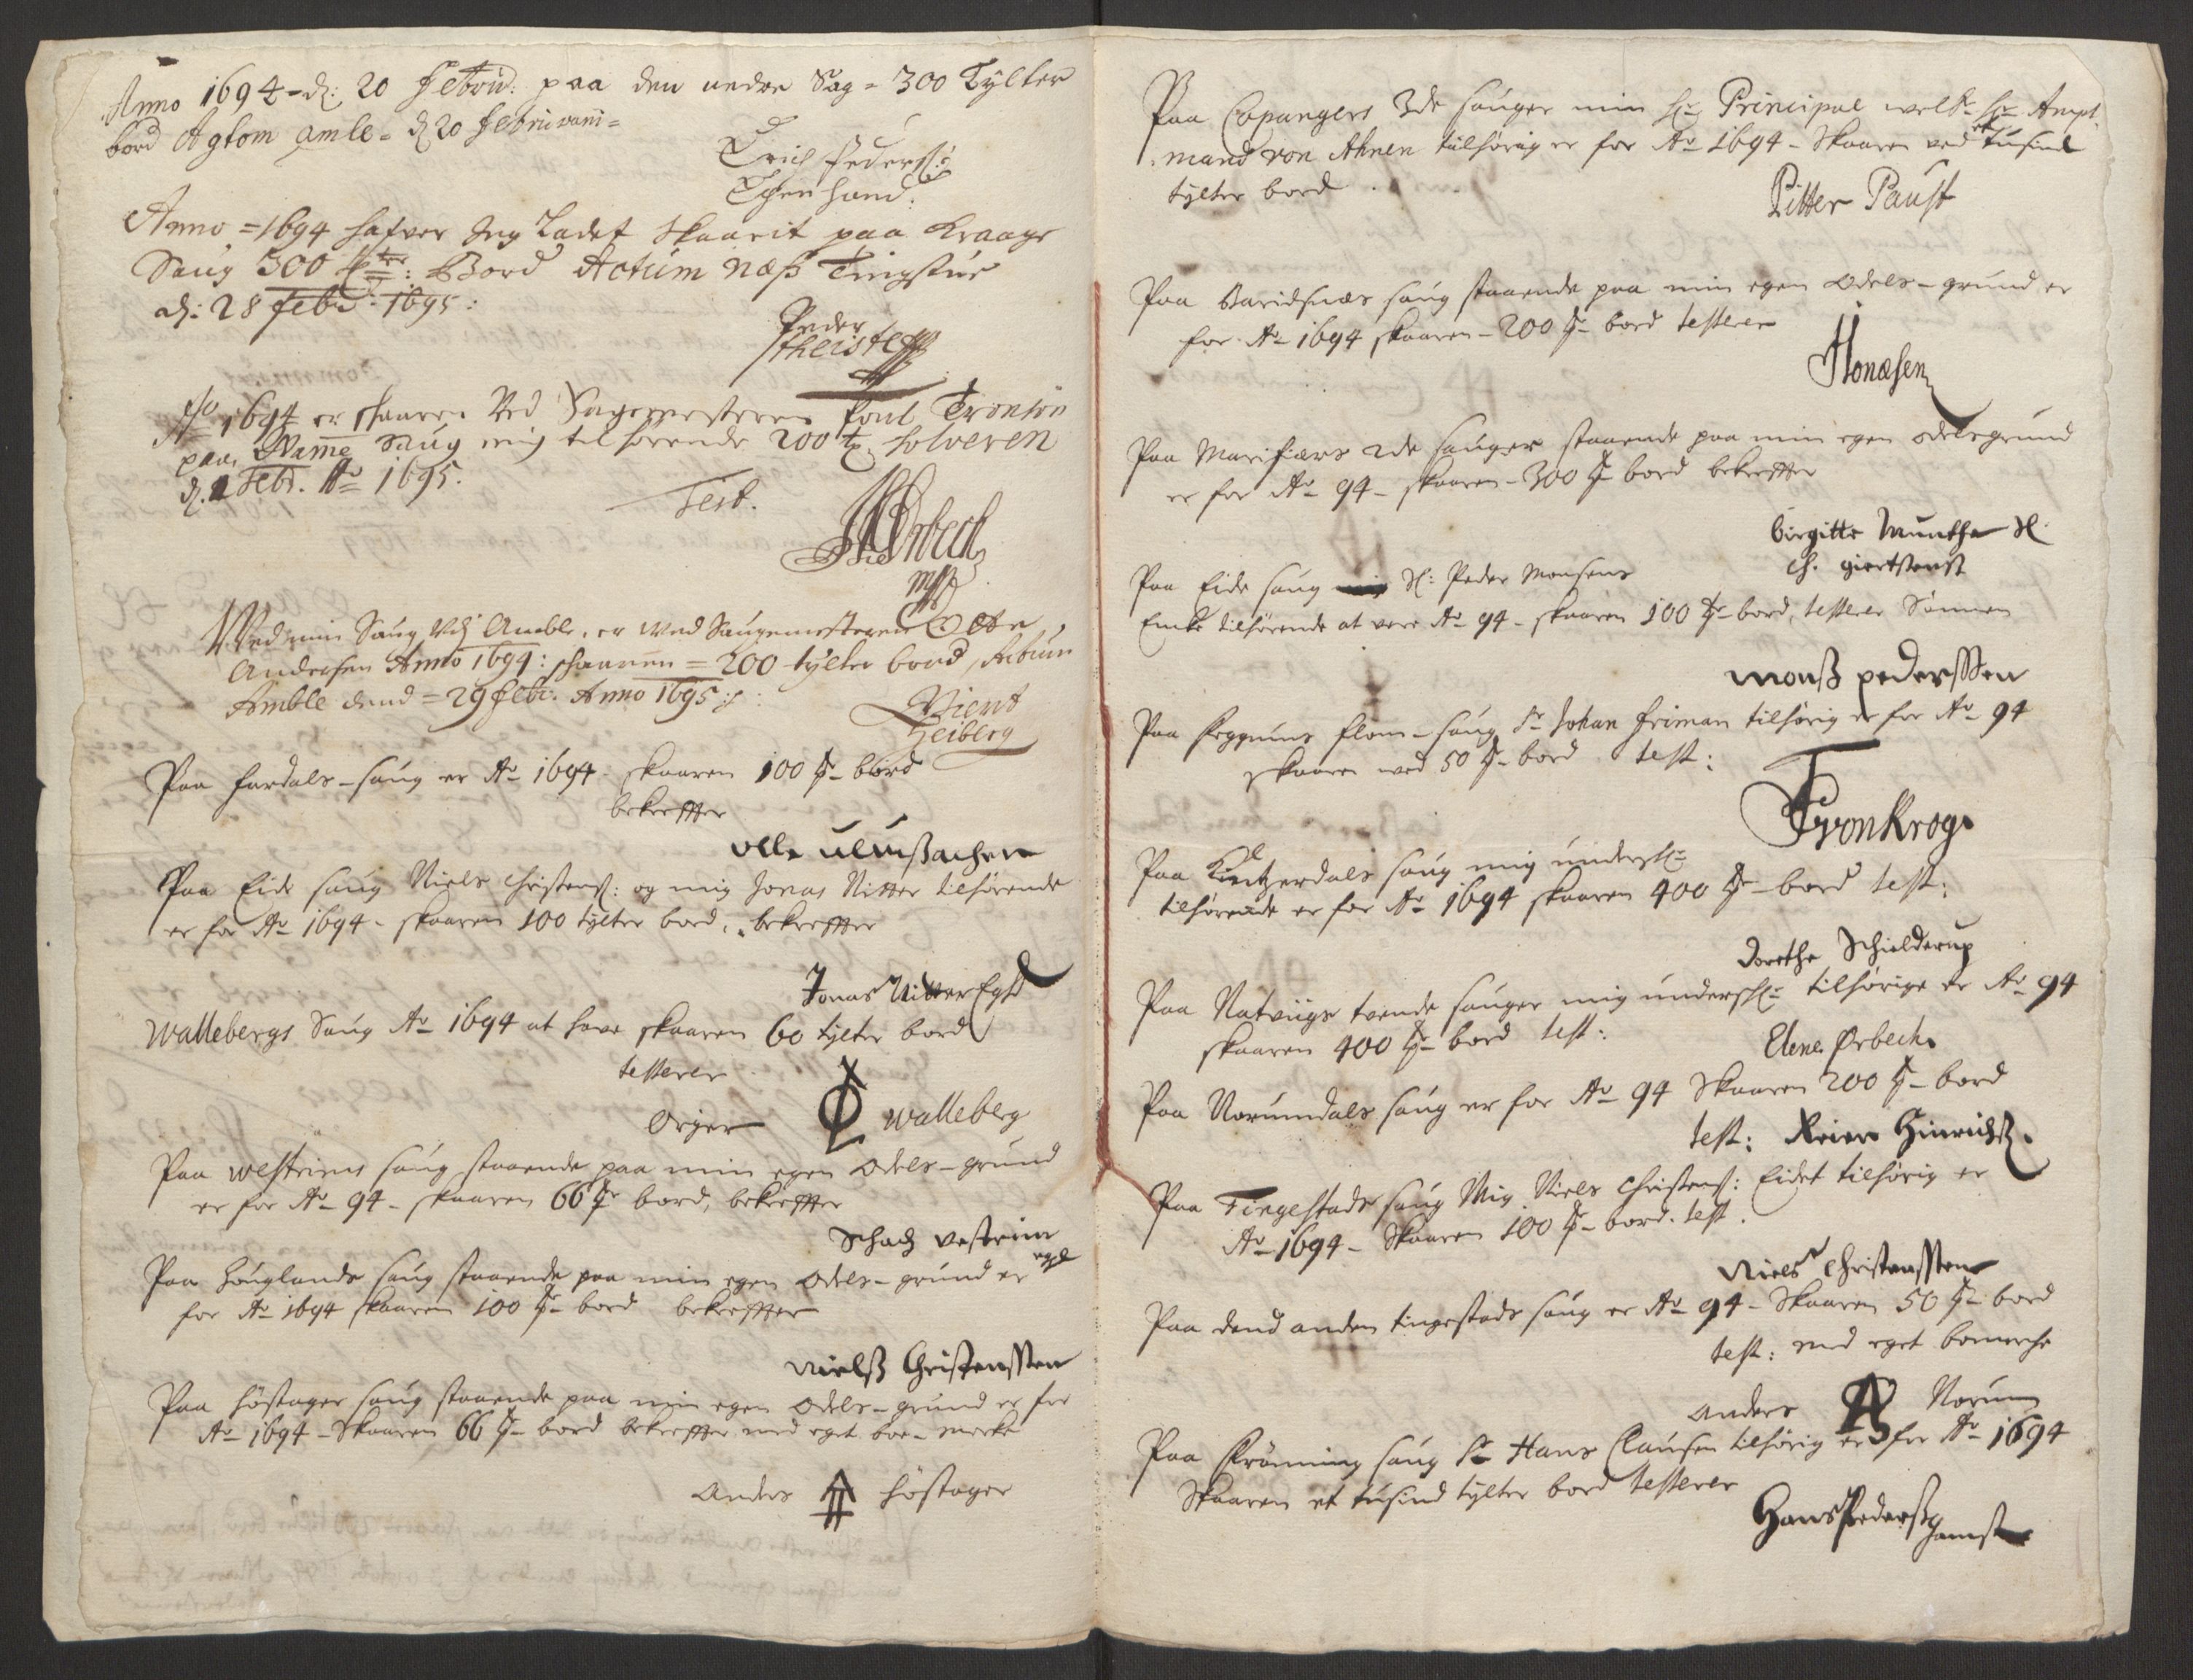 Anno 1694 - d: 20 Febru: paa den nedre Sag = 300 Tylter
bord Agtom amle = d 20 Februvarii =
Erich Peders:
Egen hand:
Anno = 1694 hafver Jeg Ladet Skaarit paa Kraage
Saug 300 tter: Bord Actum Næß Tingstue
d: 28 Febr: 1695:
Peder
Theiste
Ao 1694 er skaaren Ved Sagemesteren Poul Tronsøn
paa Wamme Saug mig tilhørende 200 t. Solveren
d. 2 Febr. Ao 1695.
Test.
Ørbech
mpp
Wed min Saug Vdj Amble, er wed Saugemesteren Otte
Andersen Anno 1694: skaaren = 200 tylter bord, Actum
Amble dend = 29 Febr. Anno 1695:
Vient
Heiberg
Paa fardals - saug er Ao 1694 - skaaren 100 t - bord
bekreffter
olle
Paa Eide saug Niels Christens: og mig Jonas Nitter tilhørende
er for Ao 1694 - skaaren 100 tylter bord, bekreffter
Jonas Nitter Eghd
Wallebergs Saug Ao 1694 at have skaaren 60 tylter bord
testerer
Brijer Walleberg
Paa Westrims saug staaende paa min egen Odels - grund
er for Ao 94 - skaaren 66 t bord, bekreffter
Schach Vestrim
eghd
Paa Houglands saug staaende paa min egen Odels - grund er
for Ao 1694 skaaren 100 t - bord bekreffter
Nielß Christenssen
Paa Høstager saug staaende paa min egen Odels - grund er for
Ao 1694 - Skaaren 66 t - bord bekreffter med eget boe - merke
Anders Høstager
Paa Copangers 3de sauger min Hr Principal welb. Hr Ampt
mand von Ahnen tilhørig er for Ao 1694 - Skaaren ved et tusind
tylter bord
Pitter Paust
Paa Baridsnæs saug staaende paa min egen Odels - grund er
for Ao 1694 skaaren - 200 t - bord testerer
Jonæsen
Paa Marifiærs 2de sauger staaende paa min egen odelsgrund
er for Ao 94 - skaaren - 300 t bord bekreffter
Birgitte Munthe Sl.
Ch. Giertsens
Paa Eide saug Sl: Peder Monsens
Enke tilhørende at vere Ao 94 - skaaren 100 t - bord, testerer Sønnen
Monß pederssen
Paa flom - saug Sr Johan Friman tilhørig er for Ao 94
skaaren med 50 t - bord test:
Fvon Krog
Paa Kintzerdals saug mig underschr:
tilhørende er for Ao 1694 skaaren 400 t - bord test:
Dorethe Schielderup
Paa Natviigs tvende sauger mig underschr: tilhørige er Ao 94
skaaren 400 t - bord test:
Elene Ørbech
Paa Norumdals saug er for Ao 94 Skaaren 200 t - bord
test: Reier Hinrichß.
Paa Tingestads saug Mig Niels Christens: Eidet tilhørig er
Ao 1694 - Skaaren 100 t - bord. test.
Niels Christenssen
Paa dend anden tingestads saug er Ao 94 - Skaaren 50 t - bord
test: med eget bomerche
Anders Norum
Paa Krønning saug Sr Hans Clausen tilhørig er for Ao 1694
Skaaren et tusind tylter bord testerer
Hans Pederß